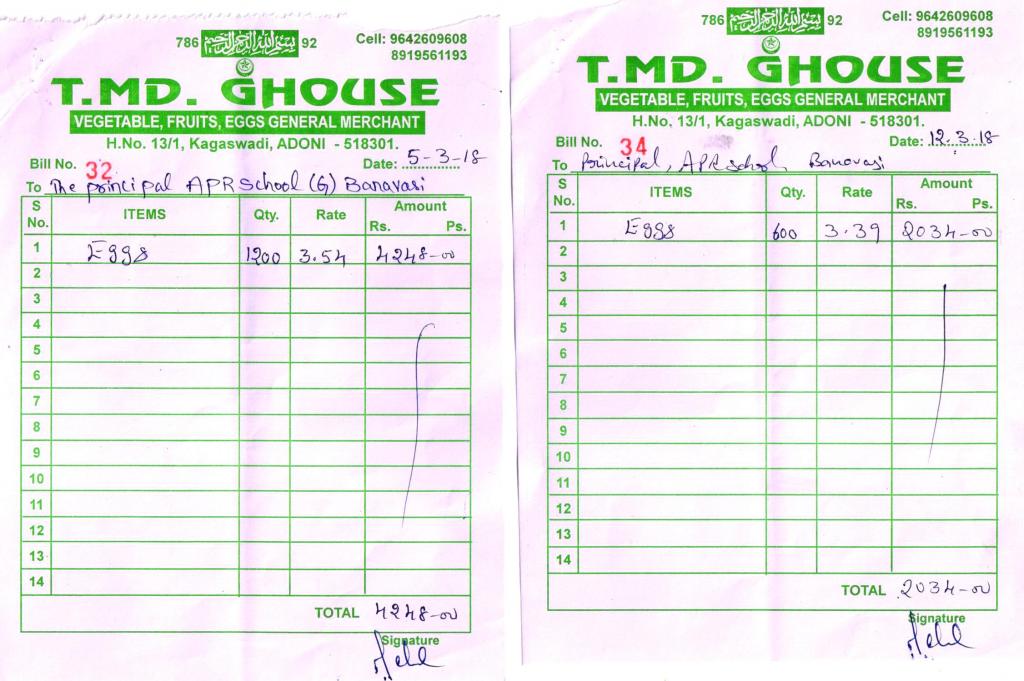 786 بسم الله الرحمن الرحيم 92
Cell: 9642609608
8919561193
T.MD. GHOUSE
VEGETABLE, FRUITS, EGGS GENERAL MERCHANT
H.No. 13/1, Kagaswadi, ADONI - 518301.
Bill No. 32 Date: 5-3-18
To The principal APR School (G) Banavasi
S No. ITEMS Qty. Rate Amount Rs. Ps.
1 Eggs 1200 3.54 4248-00
2
3
4
5
6
7
8
9
10
11
12
13
14
TOTAL 4248-00
Signature
786 بسم الله الرحمن الرحيم 92
Cell: 9642609608
8919561193
T.MD. GHOUSE
VEGETABLE, FRUITS, EGGS GENERAL MERCHANT
H.No. 13/1, Kagaswadi, ADONI - 518301.
Bill No. 34 Date: 12.3.18
To Principal, APR School, Banavasi
S No. ITEMS Qty. Rate Amount Rs. Ps.
1 Eggs 600 3.39 2034-00
2
3
4
5
6
7
8
9
10
11
12
13
14
TOTAL 2034-00
Signature